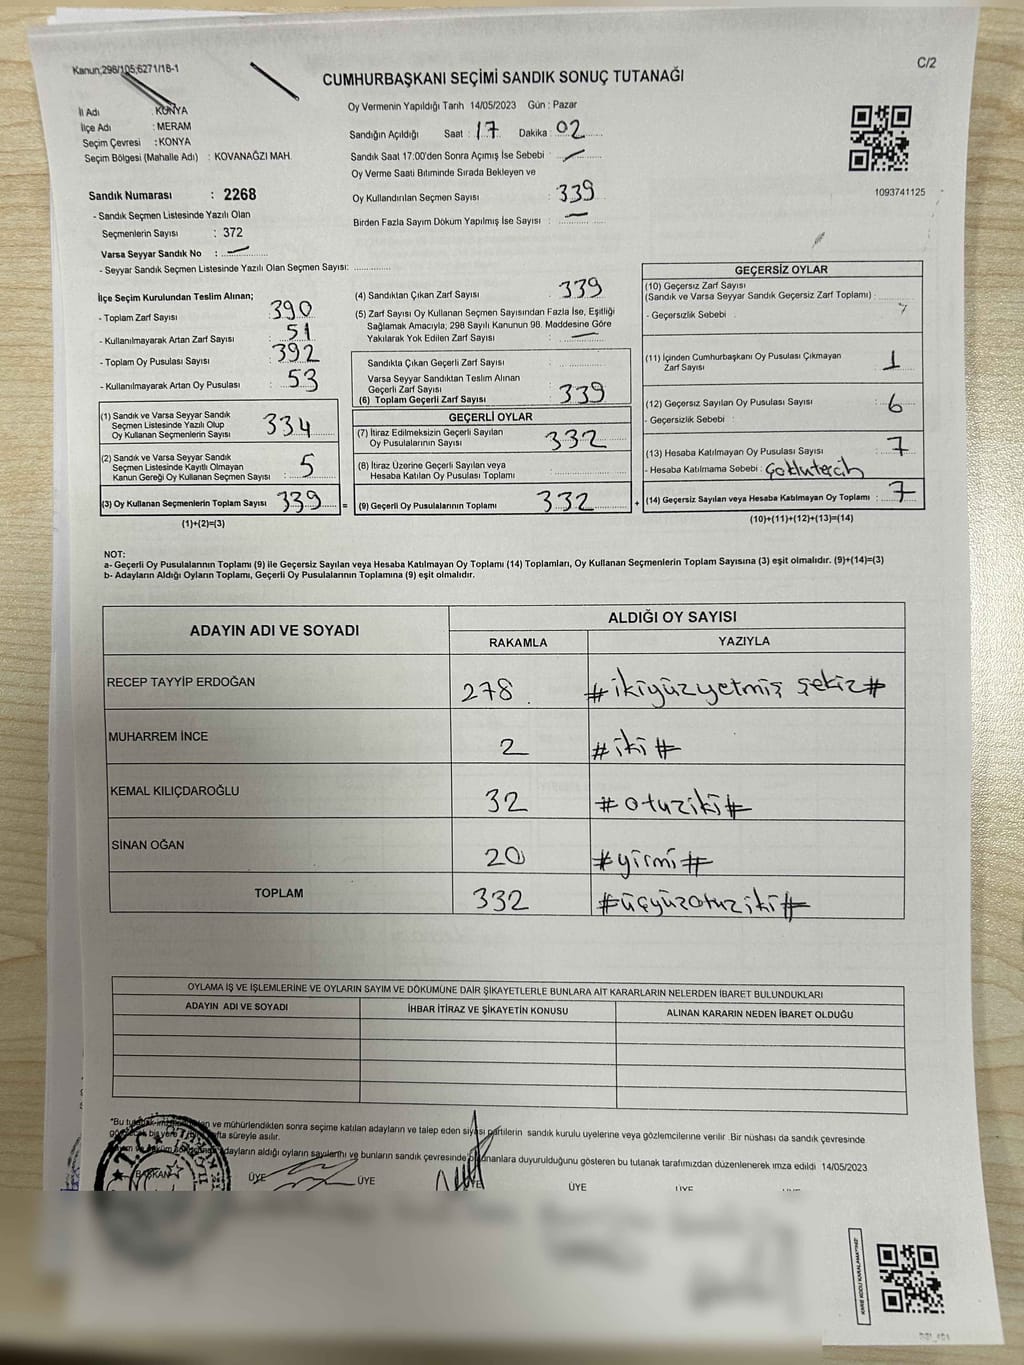 Kanun;298/105;6271/18-1
C/2
CUMHURBAŞKANI SEÇİMİ SANDIK SONUÇ TUTANAĞI
İl Adı : KONYA
İlçe Adı : MERAM
Seçim Çevresi : KONYA
Seçim Bölgesi (Mahalle Adı) : KOVANAĞZI MAH.
Oy Vermenin Yapıldığı Tarih 14/05/2023 Gün : Pazar
Sandığın Açıldığı Saat : 17 Dakika : 02
Sandık Saat 17:00'den Sonra Açımış İse Sebebi :
Oy Verme Saati Bitiminde Sırada Bekleyen ve
Oy Kullandırılan Seçmen Sayısı : 339
Birden Fazla Sayım Döküm Yapılmış İse Sayısı :
1093741125
Sandık Numarası : 2268
- Sandık Seçmen Listesinde Yazılı Olan
Seçmenlerin Sayısı : 372
Varsa Seyyar Sandık No :
- Seyyar Sandık Seçmen Listesinde Yazılı Olan Seçmen Sayısı:
İlçe Seçim Kurulundan Teslim Alınan;
- Toplam Zarf Sayısı : 390
- Kullanılmayarak Artan Zarf Sayısı : 51
- Toplam Oy Pusulası Sayısı : 392
- Kullanılmayarak Artan Oy Pusulası : 53
(1) Sandık ve Varsa Seyyar Sandık
Seçmen Listesinde Yazılı Olup
Oy Kullanan Seçmenlerin Sayısı : 334
(2) Sandık ve Varsa Seyyar Sandık
Seçmen Listesinde Kayıtlı Olmayan
Kanun Gereği Oy Kullanan Seçmen Sayısı : 5
(3) Oy Kullanan Seçmenlerin Toplam Sayısı : 339 =
(1)+(2)=(3)
(4) Sandıktan Çıkan Zarf Sayısı : 339
(5) Zarf Sayısı Oy Kullanan Seçmen Sayısından Fazla İse, Eşitliği
Sağlamak Amacıyla, 298 Sayılı Kanunun 98. Maddesine Göre
Yakılarak Yok Edilen Zarf Sayısı :
Sandıkta Çıkan Geçerli Zarf Sayısı :
Varsa Seyyar Sandıktan Teslim Alınan
Geçerli Zarf Sayısı :
(6) Toplam Geçerli Zarf Sayısı : 339
GEÇERLİ OYLAR
(7) İtiraz Edilmeksizin Geçerli Sayılan
Oy Pusulalarının Sayısı : 332
(8) İtiraz Üzerine Geçerli Sayılan veya
Hesaba Katılan Oy Pusulası Toplamı :
(9) Geçerli Oy Pusulalarının Toplamı : 332 +
GEÇERSİZ OYLAR
(10) Geçersiz Zarf Sayısı
(Sandık ve Varsa Seyyar Sandık Geçersiz Zarf Toplamı) :
- Geçersizlik Sebebi :
(11) İçinden Cumhurbaşkanı Oy Pusulası Çıkmayan
Zarf Sayısı : 1
(12) Geçersiz Sayılan Oy Pusulası Sayısı : 6
- Geçersizlik Sebebi :
(13) Hesaba Katılmayan Oy Pusulası Sayısı : 7
- Hesaba Katılmama Sebebi : Çoklutercih
(14) Geçersiz Sayılan veya Hesaba Katılmayan Oy Toplamı : 7
(10)+(11)+(12)+(13)=(14)
NOT:
a- Geçerli Oy Pusulalarının Toplamı (9) ile Geçersiz Sayılan veya Hesaba Katılmayan Oy Toplamı (14) Toplamları, Oy Kullanan Seçmenlerin Toplam Sayısına (3) eşit olmalıdır. (9)+(14)=(3)
b- Adayların Aldığı Oyların Toplamı, Geçerli Oy Pusulalarının Toplamına (9) eşit olmalıdır.
ADAYIN ADI VE SOYADI
ALDIĞI OY SAYISI
RAKAMLA YAZIYLA
RECEP TAYYİP ERDOĞAN 278 #ikiyüzyetmiş sekiz#
MUHARREM İNCE 2 #iki#
KEMAL KILIÇDAROĞLU 32 #otuziki#
SİNAN OĞAN 20 #yirmi#
TOPLAM 332 #üçyüzotuziki#
OYLAMA İŞ VE İŞLEMLERİNE VE OYLARIN SAYIM VE DÖKÜMÜNE DAİR ŞİKAYETLERLE BUNLARA AİT KARARLARIN NELERDEN İBARET BULUNDUKLARI
ADAYIN ADI VE SOYADI İHBAR İTİRAZ VE ŞİKAYETİN KONUSU ALINAN KARARIN NEDEN İBARET OLDUĞU
*Bu ve mühürlendikten sonra seçime katılan adayların ve talep eden siyasi partilerin sandık kurulu üyelerine veya gözlemcilerine verilir .Bir nüshası da sandık çevresinde
bir hafta süreyle asılır.
adayların aldığı oyların sayılarını ve bunların sandık çevresinde bulunanlara duyurulduğunu gösteren bu tutanak tarafımızdan düzenlenerek imza edildi 14/05/2023
BAŞKAN ÜYE ÜYE ÜYE ÜYE